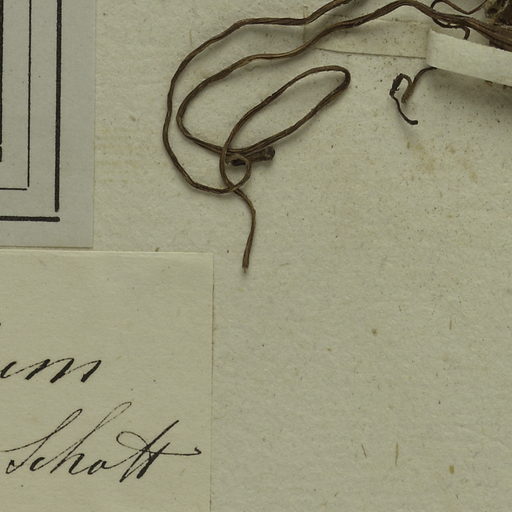 um
Schott